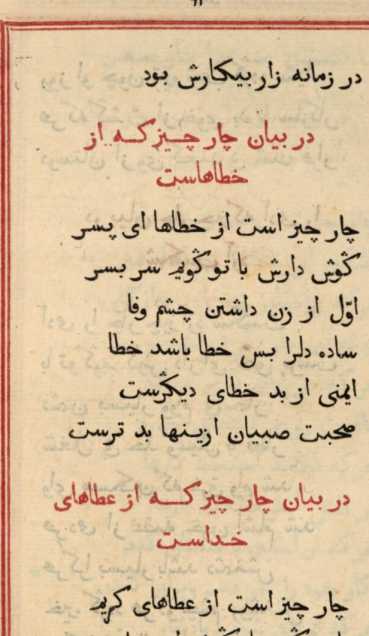 در زمانه زار بیکارش بود
در بیان چار چیز که از
خطاهاست
چار چیز است از خطاها ای پسر
کوش دارش با تو کویم سر بسر
اوّل از زن داشتن چشم وفا
ساده دلرا بس خطا باشد خطا
ایمنی از بد خطای دیکرست
صحبت صبیان ازینها بد ترست
در بیان چار چیز که از عطاهای
خداست
چار چیز است از عطاهای کریم